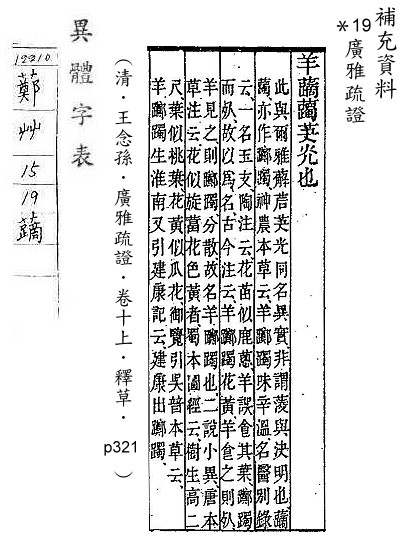 補充資料
*19
廣雅疏證
羊䕞䕽英光也
此與爾雅薢茩英光同名異實非謂蔆與決明也䕞
䕽亦作躑躅神農本草云羊躑躅味辛溫名醫別錄
云一名玉支陶注云花苗似鹿蔥羊誤食其葉躑躅
而死故以爲名古今注云羊躑躅花黃羊食之則死
羊見之則躑躅分散故名羊躑躅也二說小異唐本
草注云花似旋葍花色黃者蜀本圖經云樹生高二
尺葉似桃葉花黃似瓜花御覽引吳普本草云
羊躑躅生淮南又引建康記云建康出躑躅
(清.王念孫.廣雅疏證.卷十上.釋草.
p321)
異體字表
12210
鄭
艸
15
19